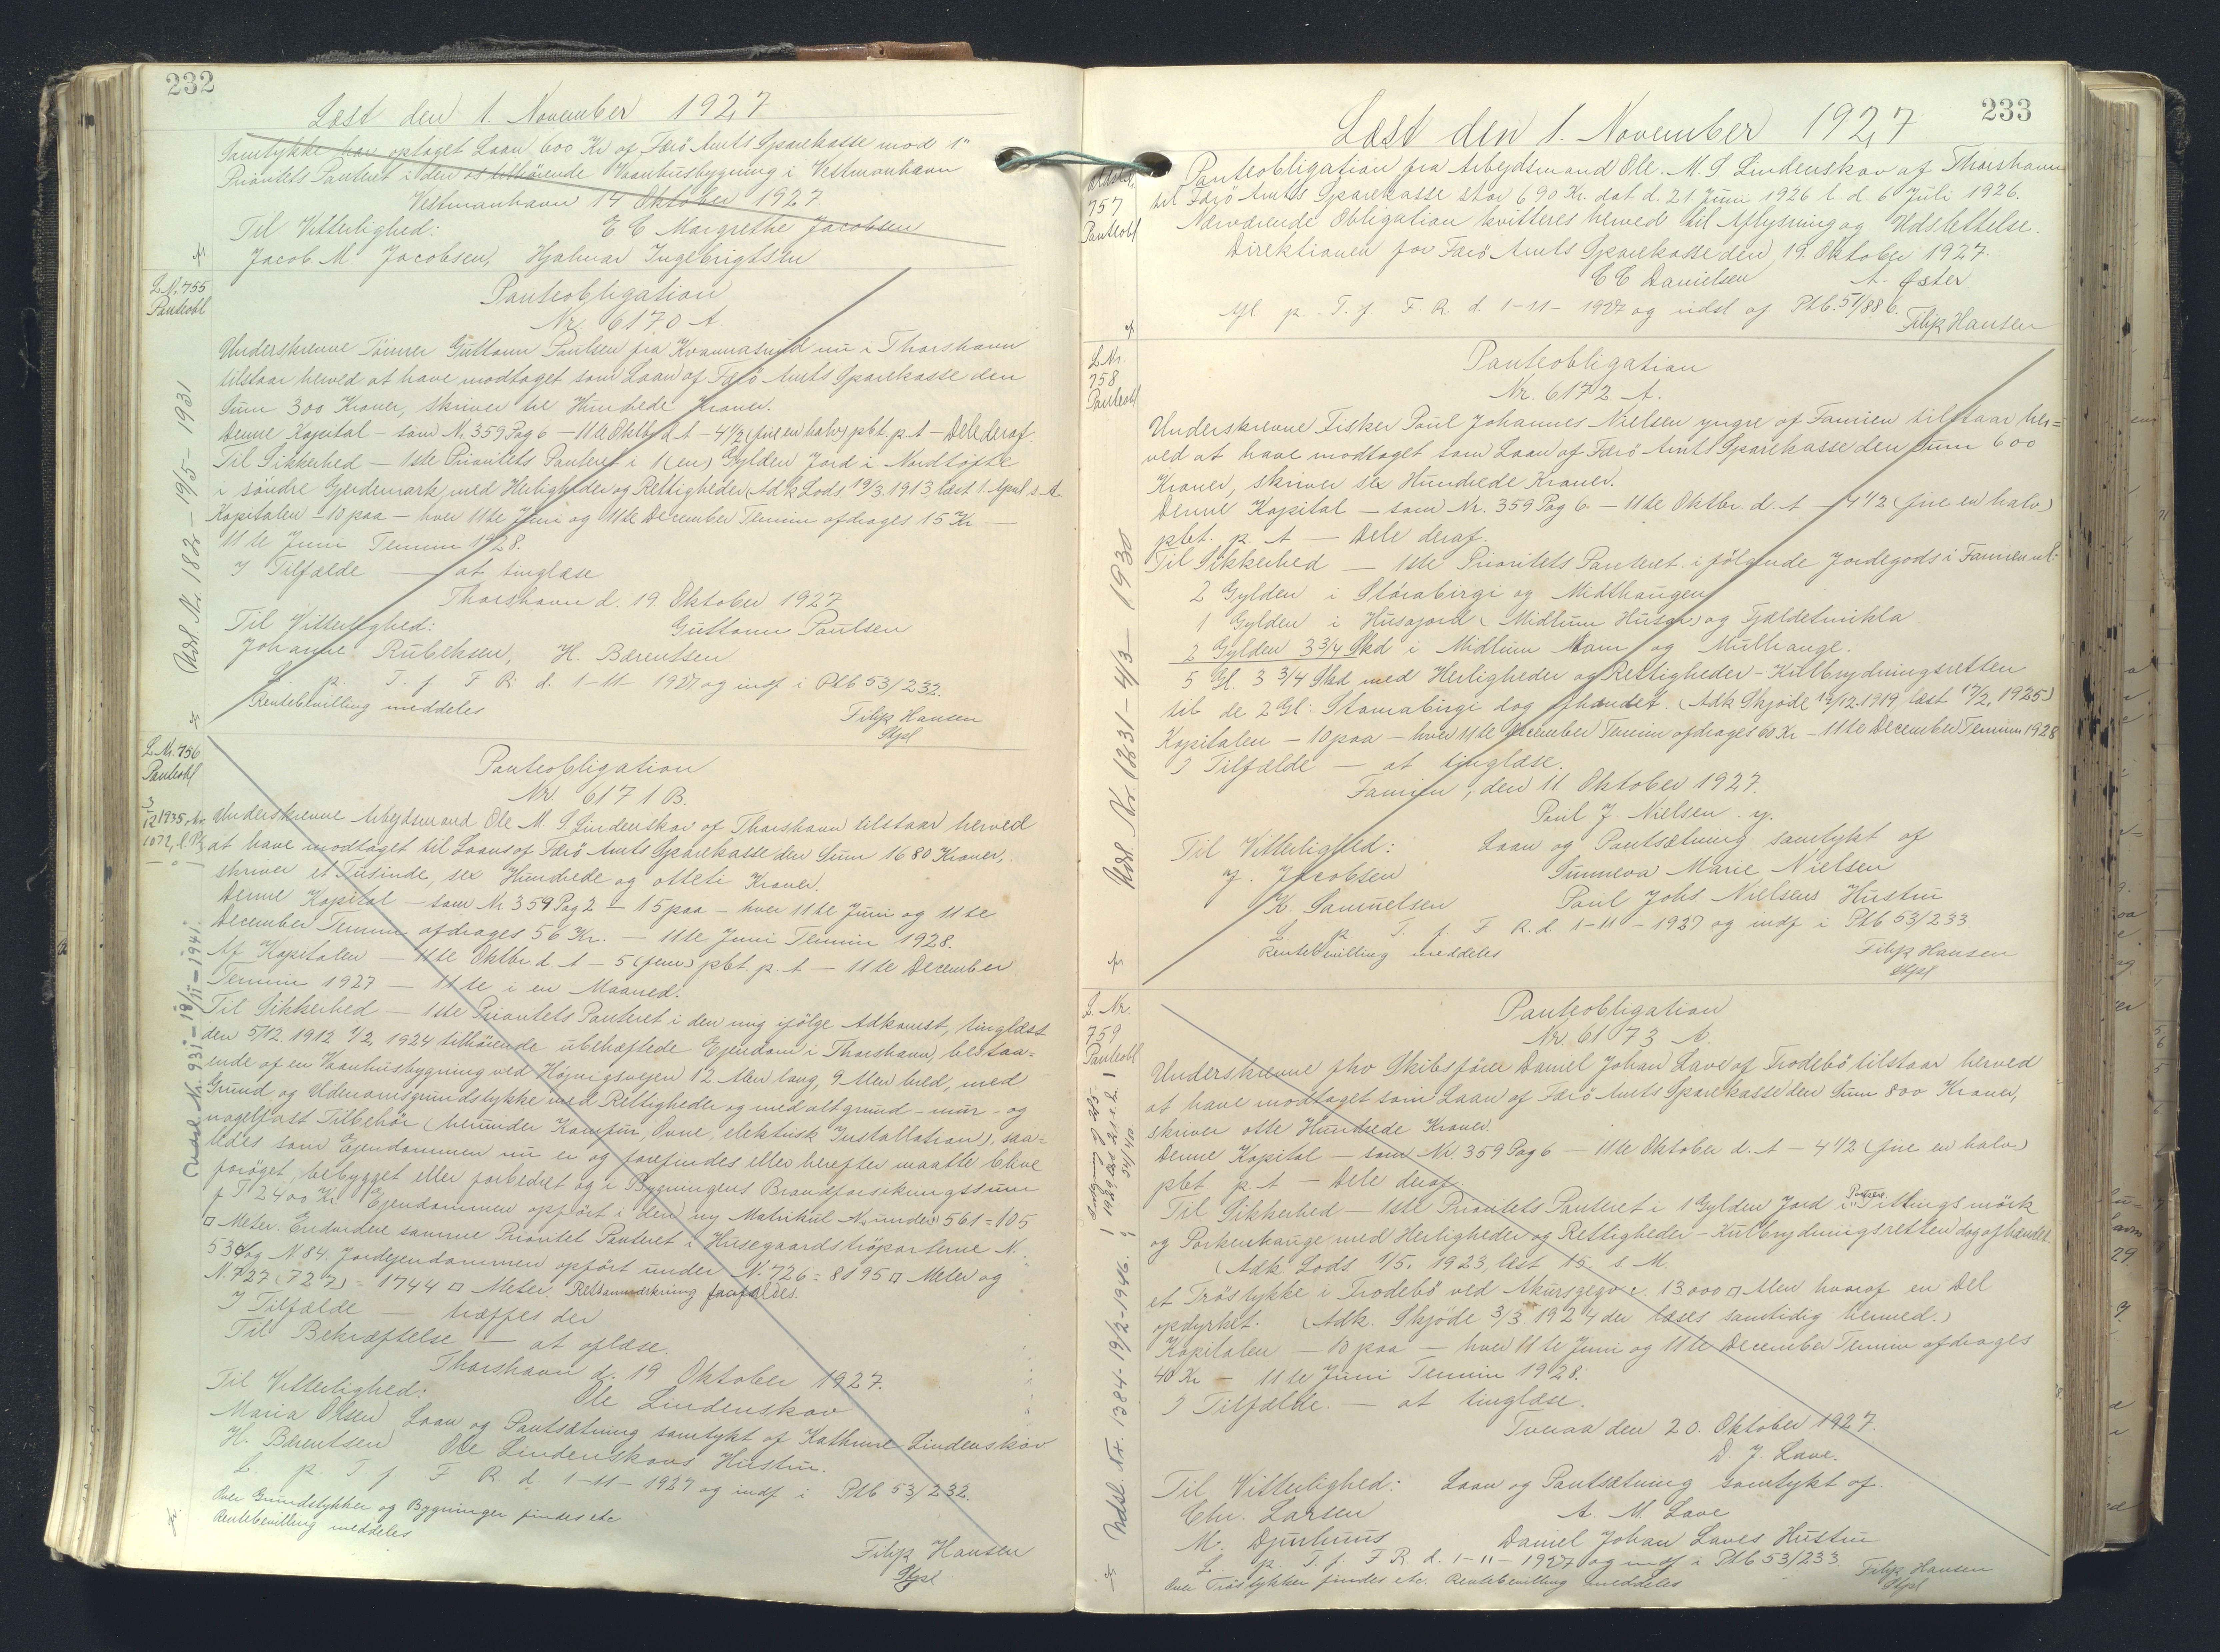 232
Læst den 1. November 1927
Samtykke har optaget Laan 600 Kr af Færö Amts Sparekasse mod 1"
Prioritets Panteret i den os tilhörende Vaanhusbygning i Vestmanhavn
Vestmanhavn 14 Oktober 1927.
Til Vitterlighed: E C Margrethe Jacobsen
Jacob M. Jacobsen, Hjalmar Ingebrigtsen
L. N. 755
Panteobl
Panteobligation
Nr. 6170 A.
Underskrevne Tömrer Guttorm Poulsen fra Kvannasund nu i Thorshavn
tilstaar herved at have modtaget som Laan af Færö Amts Sparekasse den
Sum 300 Kroner, skriver tre Hundrede Kroner.
Denne Kapital – som N. 359 Pag 6 – 11te Oktbr d. A – 4½ (fire en halv) pbt. p. A – Dele deraf.
Til Sikkerhed – 1ste Prioritets Panteret i 1 (en) Gylden Jord i Nordtöfte
i söndre Gjerdemark, med Herligheder og Rettigheder (Adk Lods. 19/3. 1913 læst 1. April s. A.
Kapitalen – 10 paa – hver 11te Juni og 11te December Termin afdrages 15 Kr –
11te Juni Termin 1928.
I Tilfælde – at tinglæse
Thorshavn d. 19 Oktober 1927
Til Vitterlighed: Guttorm Poulsen
Johanne Rubeksen, H. Bærentsen
L. p. T. f. F R. d. 1-11-1927 og indf i Ptb 53/232.
Rentebevilling meddeles
Filip Hansen
Stpl
Udsl. Nr. 182 – 19/5 – 1931
L. Nr. 756
Panteobl
Panteobligation
Nr. 6171 B.
Underskrevne Arbejdsmand Ole M. S. Lindenskov af Thorshavn tilstaar herved
at have modtaget til Laans af Færö Amts Sparekasse den Sum 1680 Kroner,
skriver et Tusinde, sex Hundrede og otteti Kroner.
Denne Kapital – som Nr 359 Pag 2 – 15 paa – hver 11te Juni og 11te
December Termin afdrages 56 Kr. – 11te Juni Termin 1928.
Af Kapitalen – 11te Oktbr. d. A – 5 (fem) pbt. p. A – 11te December
Termin 1927 – 11te i en Maaned.
Til Sikkerhed – 1ste Prioritets Panteret i den mig ifölge Adkomst, tinglæst
den 5/12. 1912 1/2, 1924 tilhörende ubehæftede Ejendom i Thorshavn, bestaa=
ende af en Vaanhusbygning ved Höjvigsvejen 12 Alen lang, 9 Alen bred, med
Grund og Udenomsgrundstykke med Rettigheder og med alt grund- mur- og
nagelfast Tilbehör (herunder Komfur, Ovne, elektrisk Installation), saa=
ledes som Ejendommen nu er og forefindes eller herefter maatte blive
foröget, bebygget eller forbedret og i Bygningens Brandforsikringssum
p T 2400 Kr. Ejendommen opfört i den ny Matrikul N. under 561 = 105
□ Meter. Endvidere samme Prioritet Panteret i Husegaardströparterne N.
53 d og N. 84. Jordejendommen opfört under N. 726 = 8195 □ Meter og
N. 727 (727) = 1744 □ Meter. Retsanmærkning forefaldes.
I Tilfælde – træffes der
Til Bekræftelse – at oplæse.
Thorshavn d. 19 Oktober 1927.
Til Vitterlighed: Ole Lindenskov
Maria Olsen Laan og Pantsætning samtykt af Kathrine Lindenskov
H. Bærentsen Ole Lindenskovs Hustru.
L. p. T. f. F R. d. 1-11-1927 og indf i Ptb 53/232.
Over Grundstykker og Bygninger findes etc
Rentebevilling meddeles
Filip Hansen
Stpl
Udsl. Nr. 931 – 18/11 – 1941.
233
Læst den 1. November 1927
757
Panteobl
Panteobligation fra Arbejdsmand Ole. M. S Lindenskov af Thorshavn
til Færö Amts Sparekasse stor 690 Kr. dat d. 21 Juni 1926 l. d. 6 Juli 1926.
Nærværende Obligation kvitteres herved til Aflysning og Udslettelse.
Direktionen for Færö Amts Sparekasse den, 19. Oktober 1927.
C C Danielsen A. Öster
Afl p. T. f. F. R. d. 1-11-1927 og udsl af Ptb. 51/886.
Filip Hansen
L. Nr.
758
Panteobl
Panteobligation
Nr. 6172 A.
Underskrevne Fisker Poul Johannes Nielsen yngre af Famien tilstaar her=
ved at have modtaget som Laan af Færö Amts Sparekasse den Sum 600
Kroner, skriver sex Hundrede Kroner.
Denne Kapital – som Nr. 359 Pag 6. – 11te Oktbr. d. A – 4½ (fire en halv)
pbt. p. A – Dele deraf.
Til Sikkerhed – 1ste Prioritets Panteret i fölgende Jordegods i Famien nl:
2 Gylden i Stórabirgi og Midthaugen
1 Gylden i Húsajord (Midtum Húsar) og Fjældetmikla
2 Gylden 3 3/4 Skd i Midtum Nam og Mulhauge.
5 Gl. 3 3/4 Skd med Herligheder og Rettigheder – Kulbrydningsretten
til de 2 Gl: Storabirgi dog afhændet. (Adk Skjöde 12/12. 1919, læst 17/2, 1925)
Kapitalen – 10 paa – hver 11te December Termin afdrages 60 Kr – 11te December Termin 1928
I Tilfælde – at tinglæse.
Famien, den 11 Oktober 1927.
Poul J Nielsen. y.
Til Vitterlighed: Laan og Pantsætning samtykt af
J. Jacobsen Sunneva Marie Nielsen
K. Samuelsen Poul Johs Nielsens Hustru
L p. T. f. F R. d 1-11-1927 og indf i Ptb 53/233
Rentebevilling meddeles
Filip Hansen
Stpl
L. Nr.
759
Panteobl
Panteobligation
Nr. 6173 A.
Underskrevne fhv Skibsförer Daniel Johan Lave af Trodebö tilstaar herved
at have modtaget som Laan af Færö Amts Sparekasse den Sum 800 Kroner,
skriver otte Hundrede Kroner.
Denne Kapital – som Nr. 359 Pag 6 – 11te Oktober d. A – 4½ (fire en halv)
pbt p. A – Dele deraf.
Til Sikkerhed – 1ste Prioritets Panteret i 1 Gylden Jord i Tillingsmörk
og Porkerehauge med Herligheder og Rettigheder – Kulbrydningsretten dog afhændet.
(Adk Lods 1/5. 1923, læst 15. s. M.
et Tröstykke i Trodebö ved Akursgegv c. 13000 □ Alen hvoraf en Del
opdyrket. (Adk. Skjöde 3/3 1924 der læses samtidig hermed.)
Kapitalen – 10 paa – hver 11te Juni og 11te December Termin afdrages
40 Kr – 11te Juni Termin 1928.
I Tilfælde. – at tinglæse.
Tveraa den 20. Oktober 1927.
D. J. Lave.
Til Vitterlighed: Laan og Pantsætning samtykt af.
Chr. Larsen A. M. Lave
M. Djurhuus Daniel Johan Laves Hustru
L p. T. f. F R. d. 1-11-1927 og indf i Ptb 53/233
Over Tröstykker findes etc. Rentebevilling meddeles
Filip Hansen
Stpl
Udsl. Nr. 1384 – 19/2 – 1946.